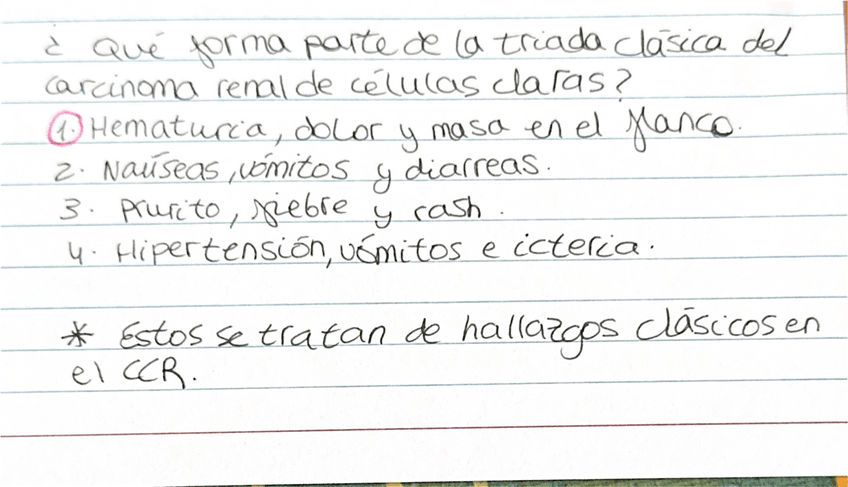 ¿ Qué forma parte de la triada clásica del
carcinoma renal de células claras?
1. Hematuria, dolor y masa en el flanco.
2. Naúseas, vómitos y diarreas.
3. Prurito, fiebre y rash.
4. Hipertensión, vómitos e ictericia.
* Estos se tratan de hallazgos clásicos en
el CCR.